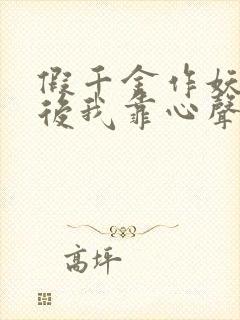 假千金作妖
後我靠心聲
高坪